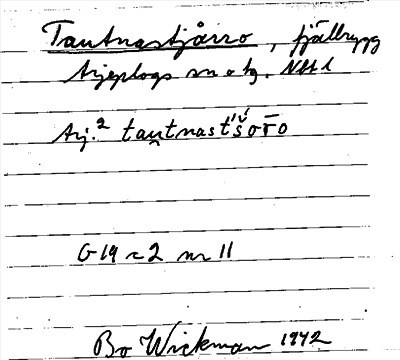 Tautnastjårro, fjällrygg
Arjeplogs sn o tg. Nbl
Arj.² tau̯tnast́š́or̄o
G 19 c 2 nr 11
Bo Wickman 1942